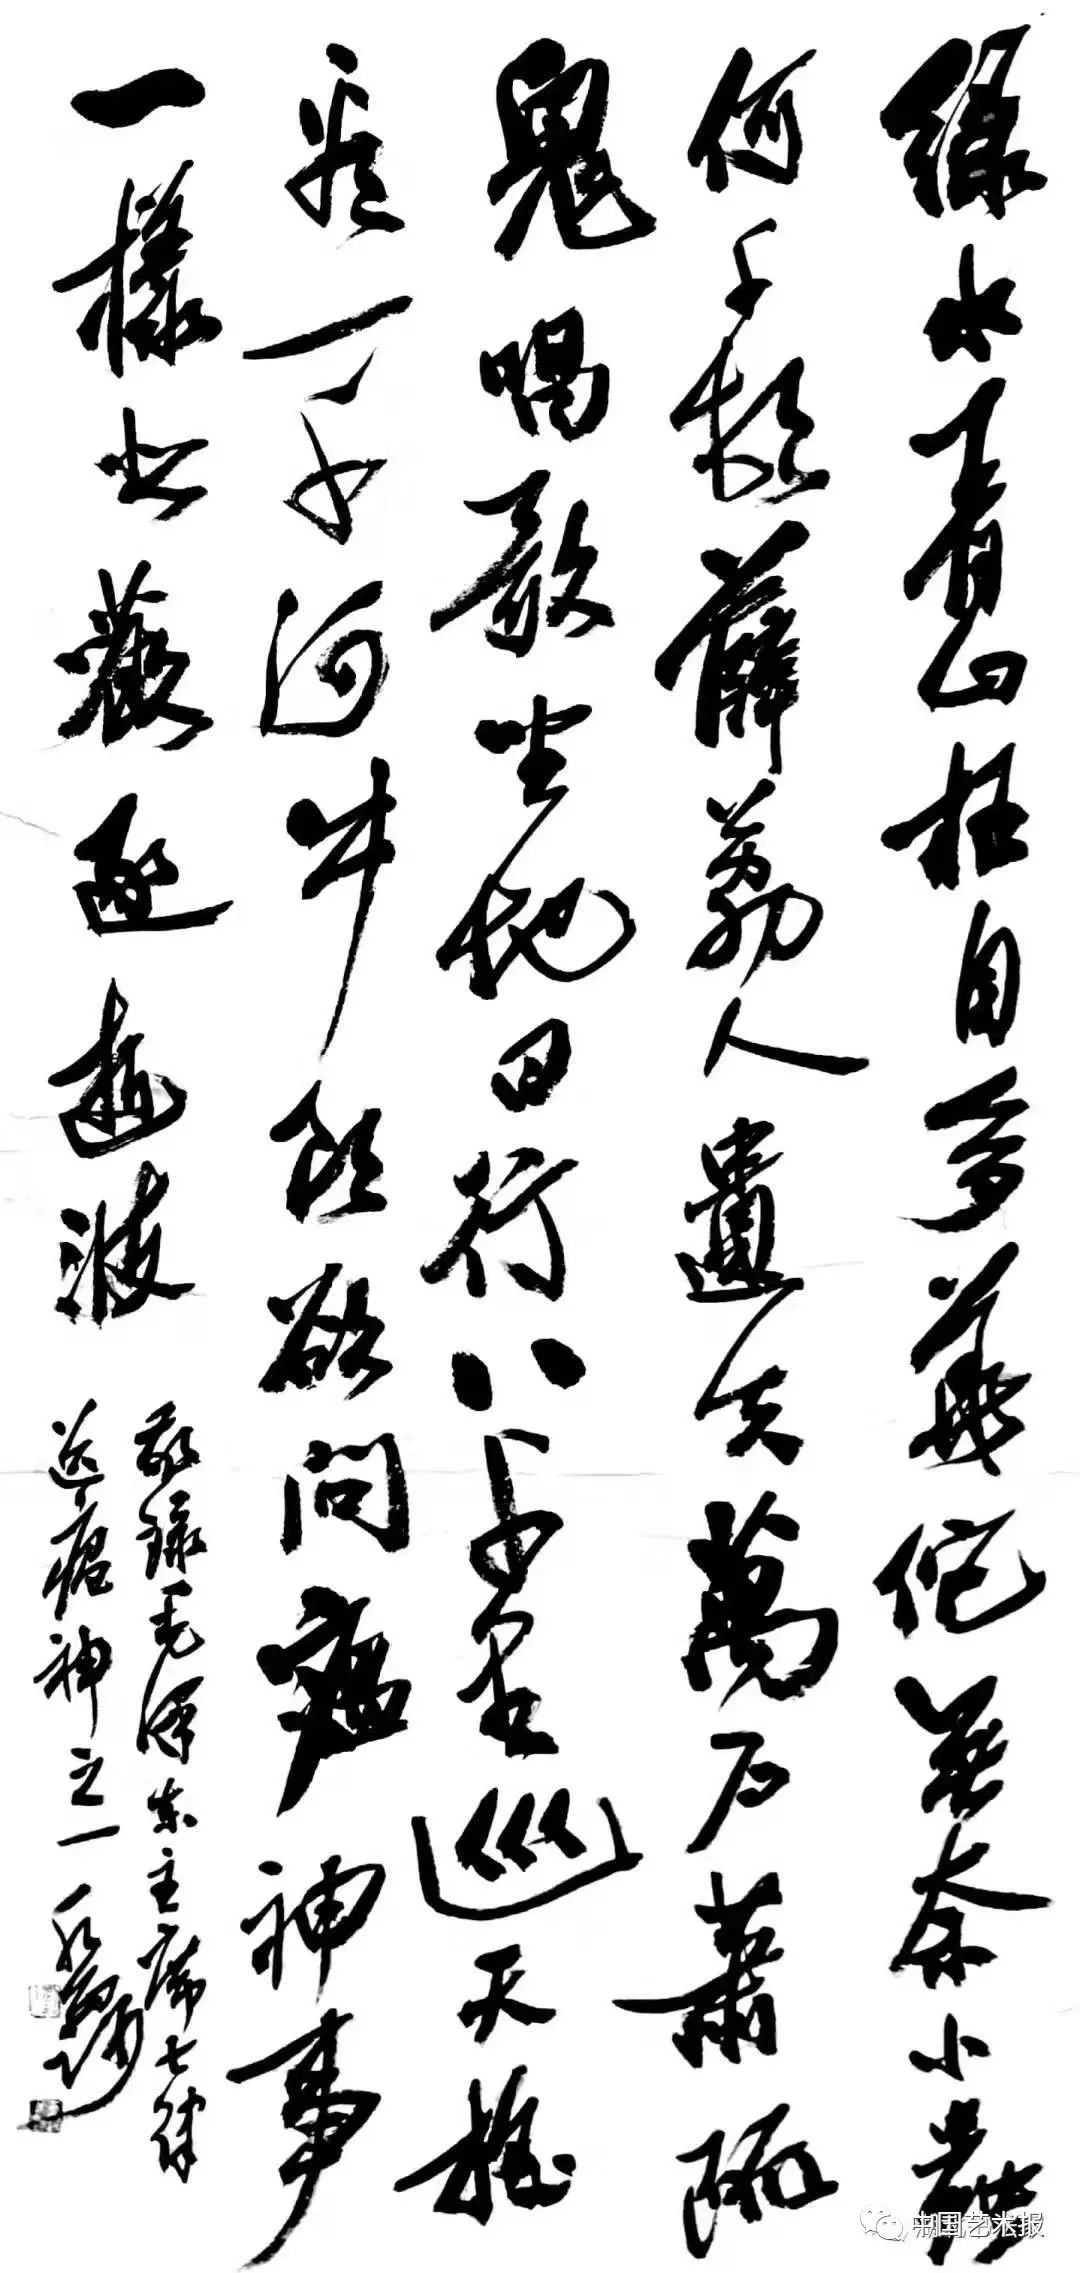 綠水青山枉自多華佗無奈小蟲
何千村薜荔人遺矢萬戶蕭疏
鬼唱歌坐地日行八千里巡天遙
看一千河牛郎欲問瘟神事
一樣悲歡逐逝波
敬錄毛澤東主席七律
送瘟神之一
中国艺术报